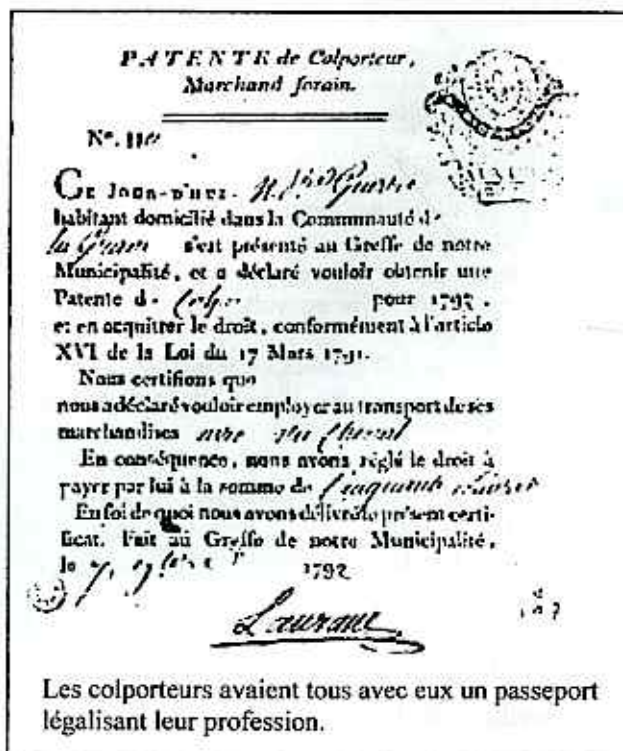 PATENTE de Colporteur,
Marchand forain.
No.
CE JOUR-D'HUI
habitant domicilié dans la Communauté de
s'est présenté au Greffe de notre
Municipalité, et a déclaré vouloir obtenir une
Patente de pour 1792,
et en acquitter le droit, conformément à l'article
XVI de la Loi du 17 Mars 1791.
Nous certifions que
nous a déclaré vouloir employer au transport de ses
marchandises
En conséquence, nous avons réglé le droit à
payer par lui à la somme de Cinquante
En foi de quoi nous avons délivré le présent certi-
ficat. Fait au Greffe de notre Municipalité,
le 1792
Les colporteurs avaient tous avec eux un passeport
légalisant leur profession.